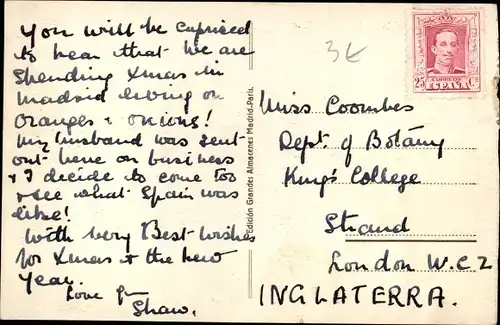 You will be suprised
to hear that we are
spending Xmas in
Madrid living on
oranges & onions!
My husband was sent
out here on business
& I decide to come too
& see what Spain was
like!
With very Best Wishes
for Xmas & the New
Year.
Love from
Shaw.
Edición Grandes Almacenes Madrid-París.
3€
CORREOS
25 25
ESPAÑA
Miss Coombes
Dept of Botany
King's College
Strand
London W.C.2
INGLATERRA.